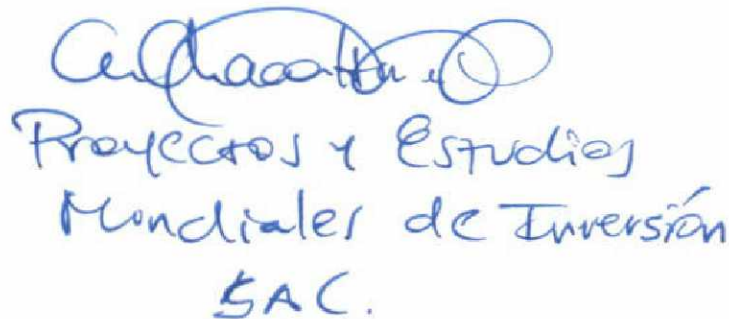 Proyectos y Estudios
Mundiales de Inversión
SAC.